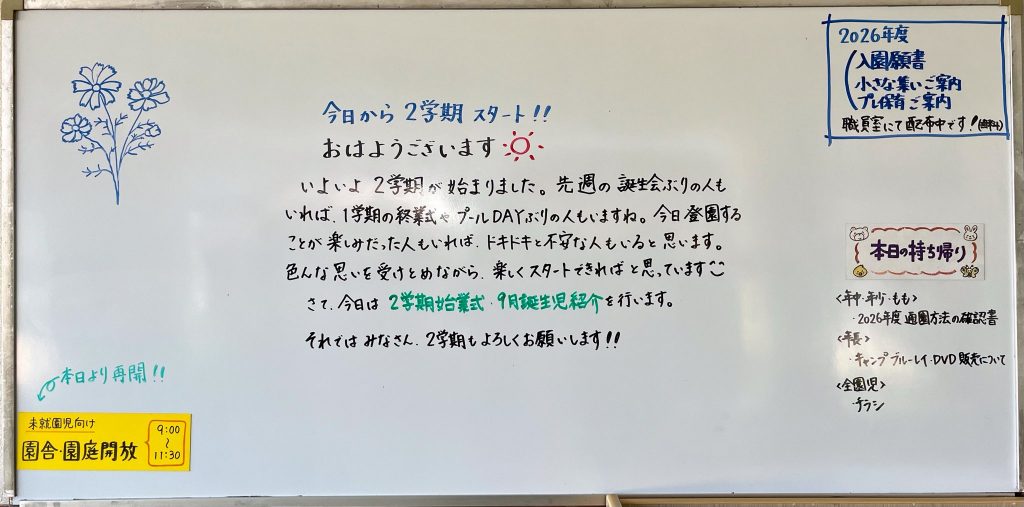 今日から 2学期 スタート!!
おはようございます
いよいよ 2学期が始まりました。先週の誕生会ぶりの人も
いれば、1学期の終業式やプールDAYぶりの人もいますね。今日登園する
ことが楽しみだった人もいれば、ドキドキと不安な人もいると思います。
色んな思いを受けとめながら、楽しくスタートできればと思っています
さて、今日は 2学期始業式・9月誕生児紹介を行います。
それではみなさん、2学期もよろしくお願いします!!
本日より再開!!
未就園児向け
園舎・園庭開放
9:00
〜
11:30
2026年度
入園願書
小さな集いご案内
プレ保育ご案内
職員室にて配布中です!(無料)
本日の持ち帰り
<年中・年少・もも>
・2026年度 通園方法の確認書
<年長>
・キャンプ ブルーレイ・DVD 販売について
<全園児>
・チラシ